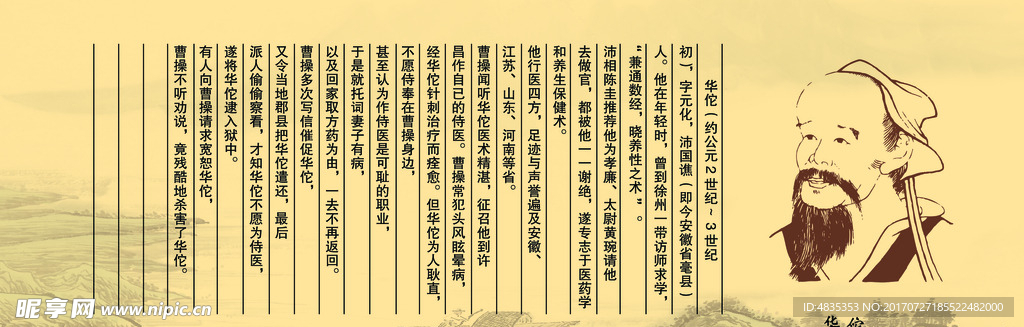 华佗（约公元2世纪~3世纪
初），字元化，沛国谯（即今安徽省毫县）
人。他在年轻时，曾到徐州一带访师求学，
“兼通数经，晓养性之术”。
沛相陈圭推荐他为孝廉、太尉黄琬请他
去做官，都被他一一谢绝，遂专志于医药学
和养生保健术。
他行医四方，足迹与声誉遍及安徽、
江苏、山东、河南等省。
曹操闻听华佗医术精湛，征召他到许
昌作自已的侍医。曹操常犯头风眩晕病，
经华佗针刺治疗而痊愈。但华佗为人耿直，
不愿侍奉在曹操身边，
甚至认为作侍医是可耻的职业，
于是就托词妻子有病，
以及回家取方药为由，一去不再返回。
曹操多次写信催促华佗，
又令当地郡县把华佗遣还，最后
派人偷偷察看，才知华佗不愿为侍医，
遂将华佗逮入狱中。
有人向曹操请求宽恕华佗，
曹操不听劝说，竟残酷地杀害了华佗。
华佗
昵享网 www.nipic.cn
ID:4835353 NO:20170727185522482000